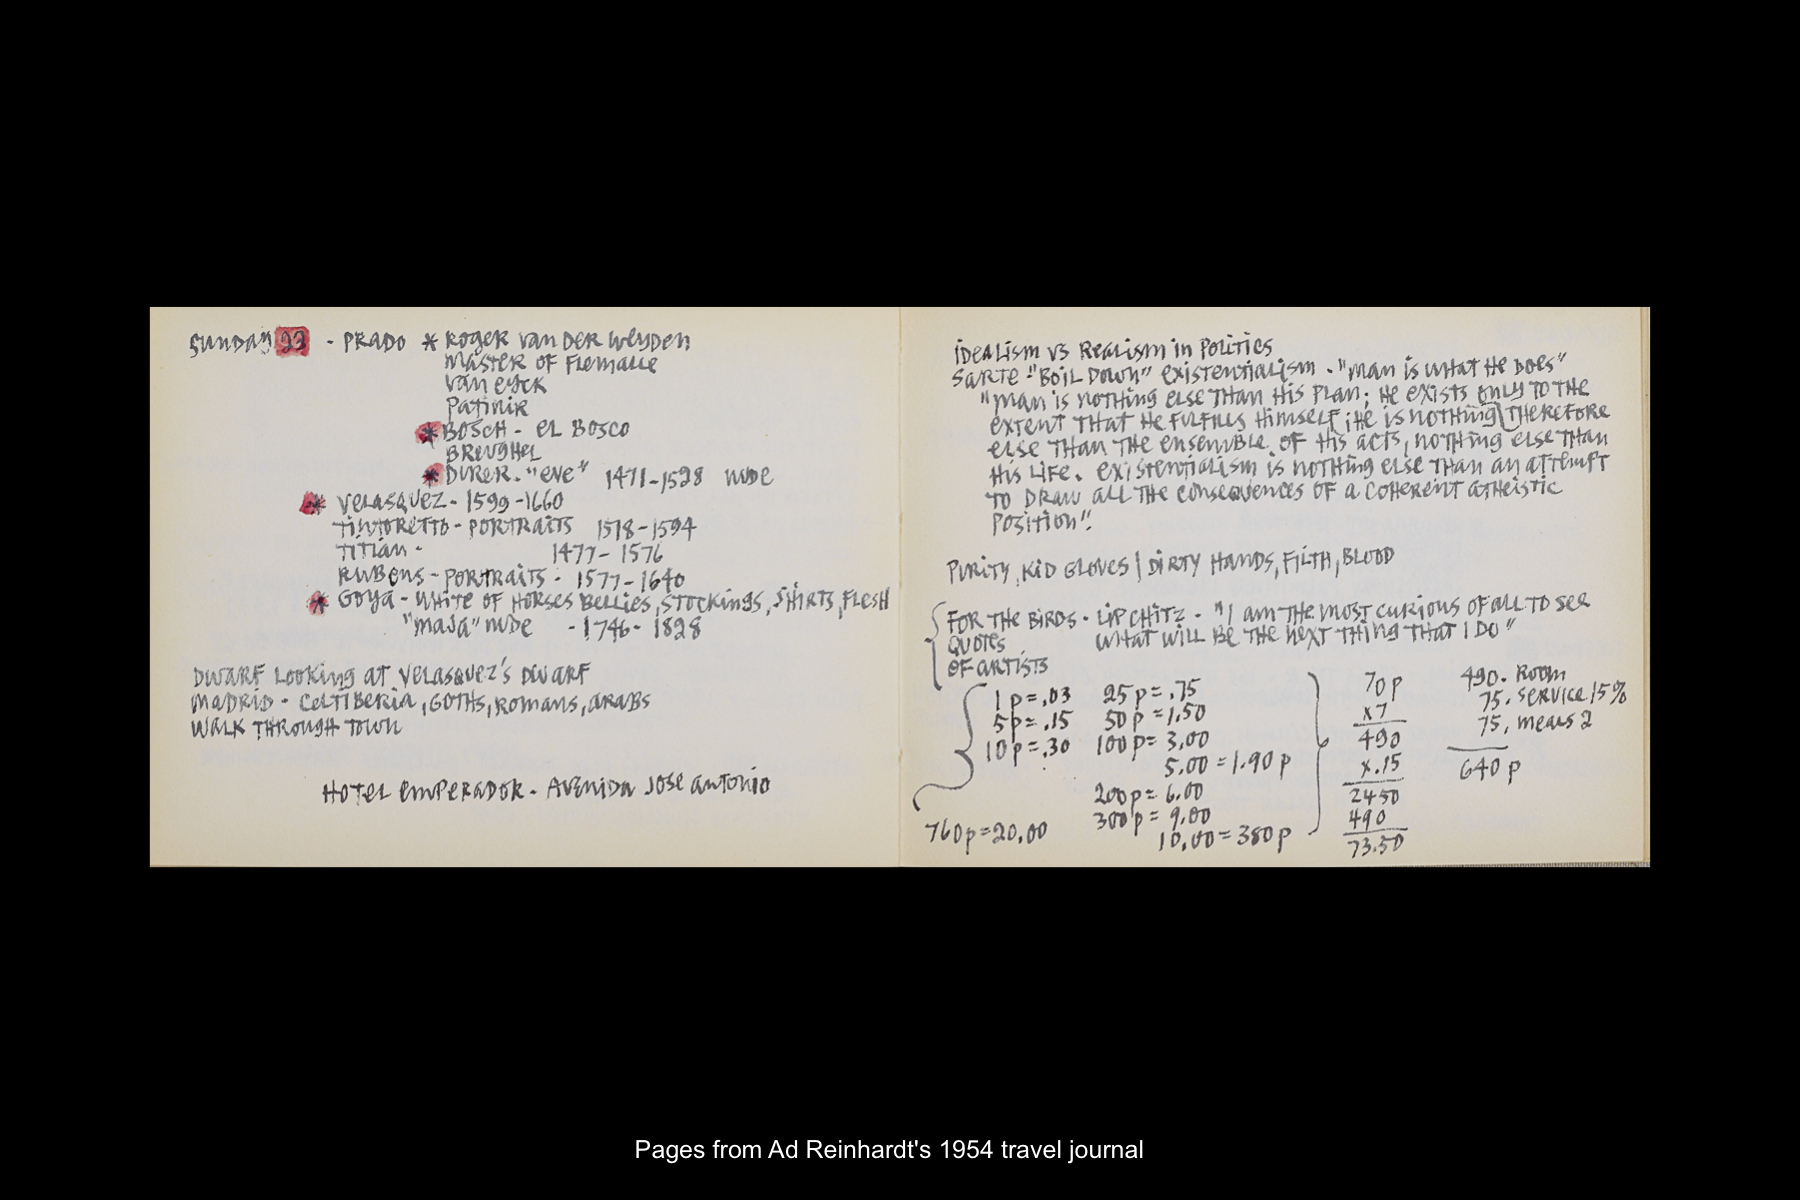 SUNDAY 22 - PRADO * ROGER VAN DER WEYDEN
MASTER OF FLEMALLE
VAN EYCK
PATINIR
* BOSCH - EL BOSCO
BREUGHEL
* DURER - "EVE" 1471-1528 NUDE
* VELASQUEZ - 1599-1660
TINTORETTO - PORTRAITS 1518-1594
TITIAN - 1477-1576
RUBENS - PORTRAITS - 1577-1640
* GOYA - WHITE OF HORSES BELLIES, STOCKINGS, SHIRTS, FLESH
"MAJA" NUDE - 1746-1828
DWARF LOOKING AT VELASQUEZ'S DWARF
MADRID - CELTIBERIA, GOTHS, ROMANS, ARABS
WALK THROUGH TOWN
HOTEL EMPERADOR - AVENIDA JOSE ANTONIO
IDEALISM VS REALISM IN POLITICS
SARTE - "BOIL DOWN" EXISTENTIALISM - "MAN IS WHAT HE DOES"
"MAN IS NOTHING ELSE THAN HIS PLAN; HE EXISTS ONLY TO THE
EXTENT THAT HE FULFILLS HIMSELF; HE IS NOTHING THEREFORE
ELSE THAN THE ENSEMBLE OF HIS ACTS, NOTHING ELSE THAN
HIS LIFE. EXISTENTIALISM IS NOTHING ELSE THAN AN ATTEMPT
TO DRAW ALL THE CONSEQUENCES OF A COHERENT ATHEISTIC
POSITION".
PURITY, KID GLOVES | DIRTY HANDS, FILTH, BLOOD
FOR THE BIRDS - LIPCHITZ - "I AM THE MOST CURIOUS OF ALL TO SEE
QUOTES WHAT WILL BE THE NEXT THING THAT I DO"
OF ARTISTS
1 p = .03 25 p = .75
5 p = .15 50 p = 1.50
10 p = .30 100 p = 3.00
5.00 = 1.90 p
200 p = 6.00
300 p = 9.00
760 p = 20.00 10.00 = 380 p
70 p
x 7
490
x .15
2450
490
73.50
490. ROOM
75. SERVICE 15%
75. MEALS 2
640 p
Pages from Ad Reinhardt's 1954 travel journal